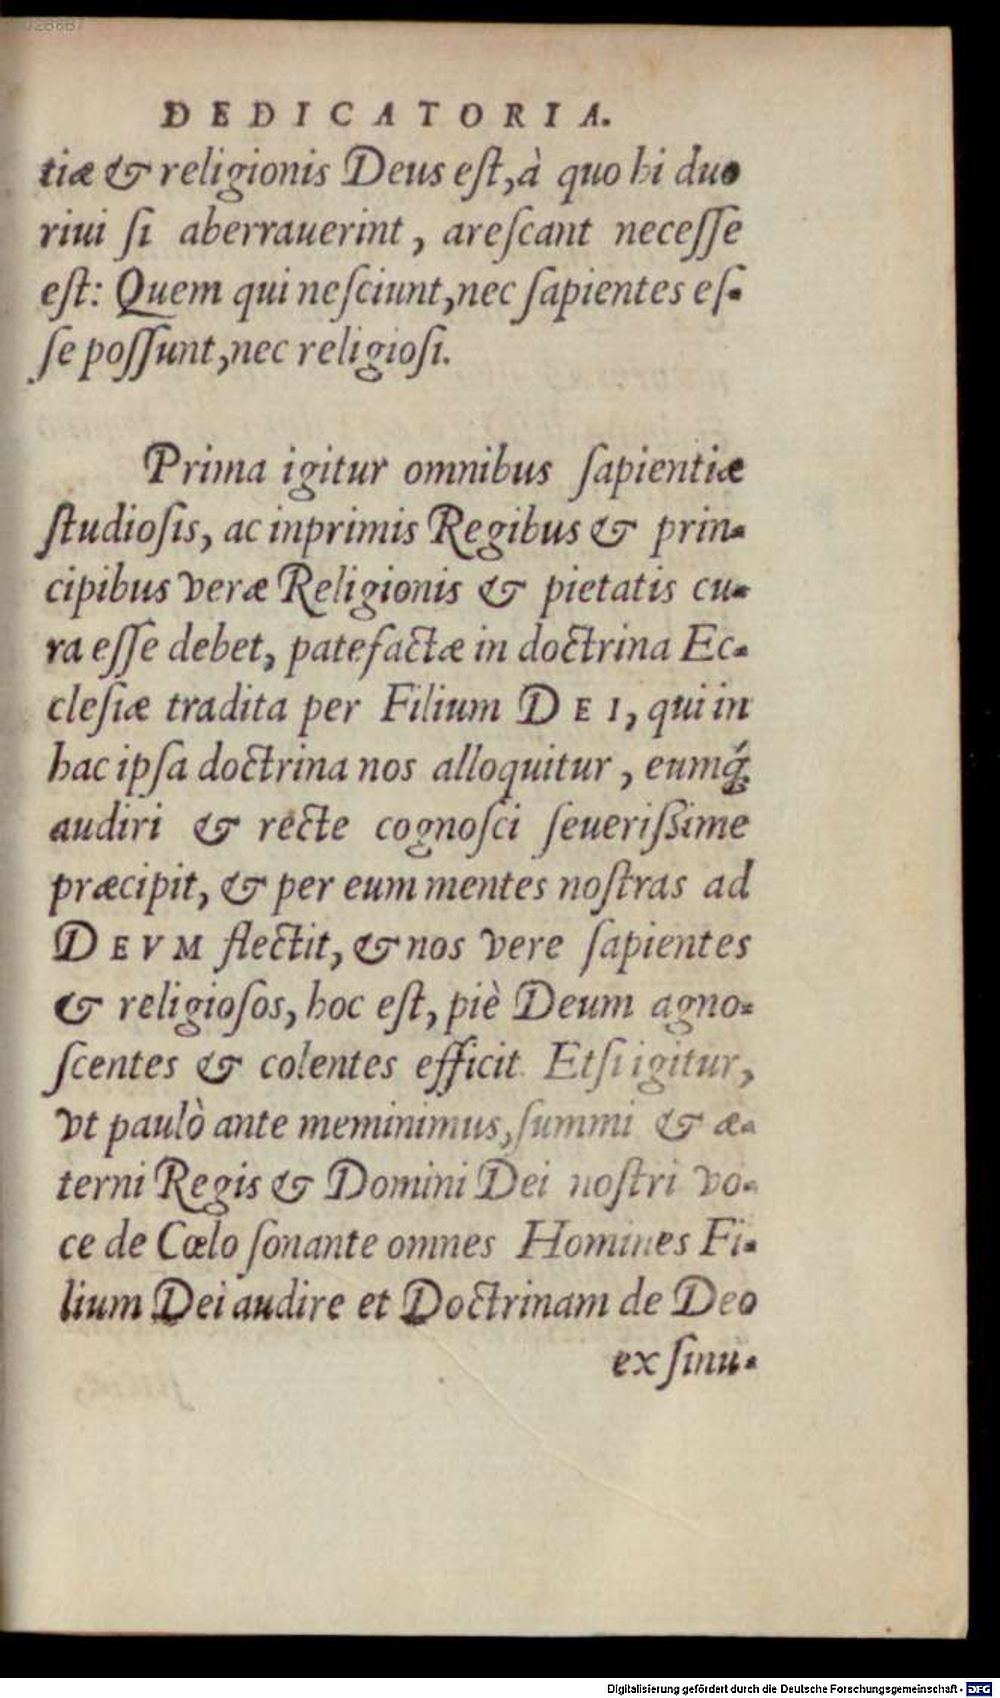 DEDICATORIA.
tiæ & religionis Deus eſt, à quo hi duo
riui ſi aberrauerint, areſcant neceſſe
eſt: Quem qui neſciunt, nec ſapientes eſ-
ſe poſſunt, nec religioſi.
Prima igitur omnibus ſapientiæ
ſtudioſis, ac inprimis Regibus & prin-
cipibus veræ Religionis & pietatis cu-
ra eſſe debet, patefactæ in doctrina Ec-
cleſiæ tradita per Filium DEI, qui in
hac ipſa doctrina nos alloquitur, eumq́;
audiri & recte cognoſci ſeueriſſime
præcipit, & per eum mentes noſtras ad
DEVM flectit, & nos vere ſapientes
& religioſos, hoc eſt, piè Deum agno-
ſcentes & colentes efficit. Etſi igitur,
vt paulò ante meminimus, ſummi & æ-
terni Regis & Domini Dei noſtri vo-
ce de Cœlo ſonante omnes Homines Fi-
lium Dei audire et Doctrinam de Deo
ex ſinu-
Digitalisierung gefördert durch die Deutsche Forschungsgemeinschaft - DFG